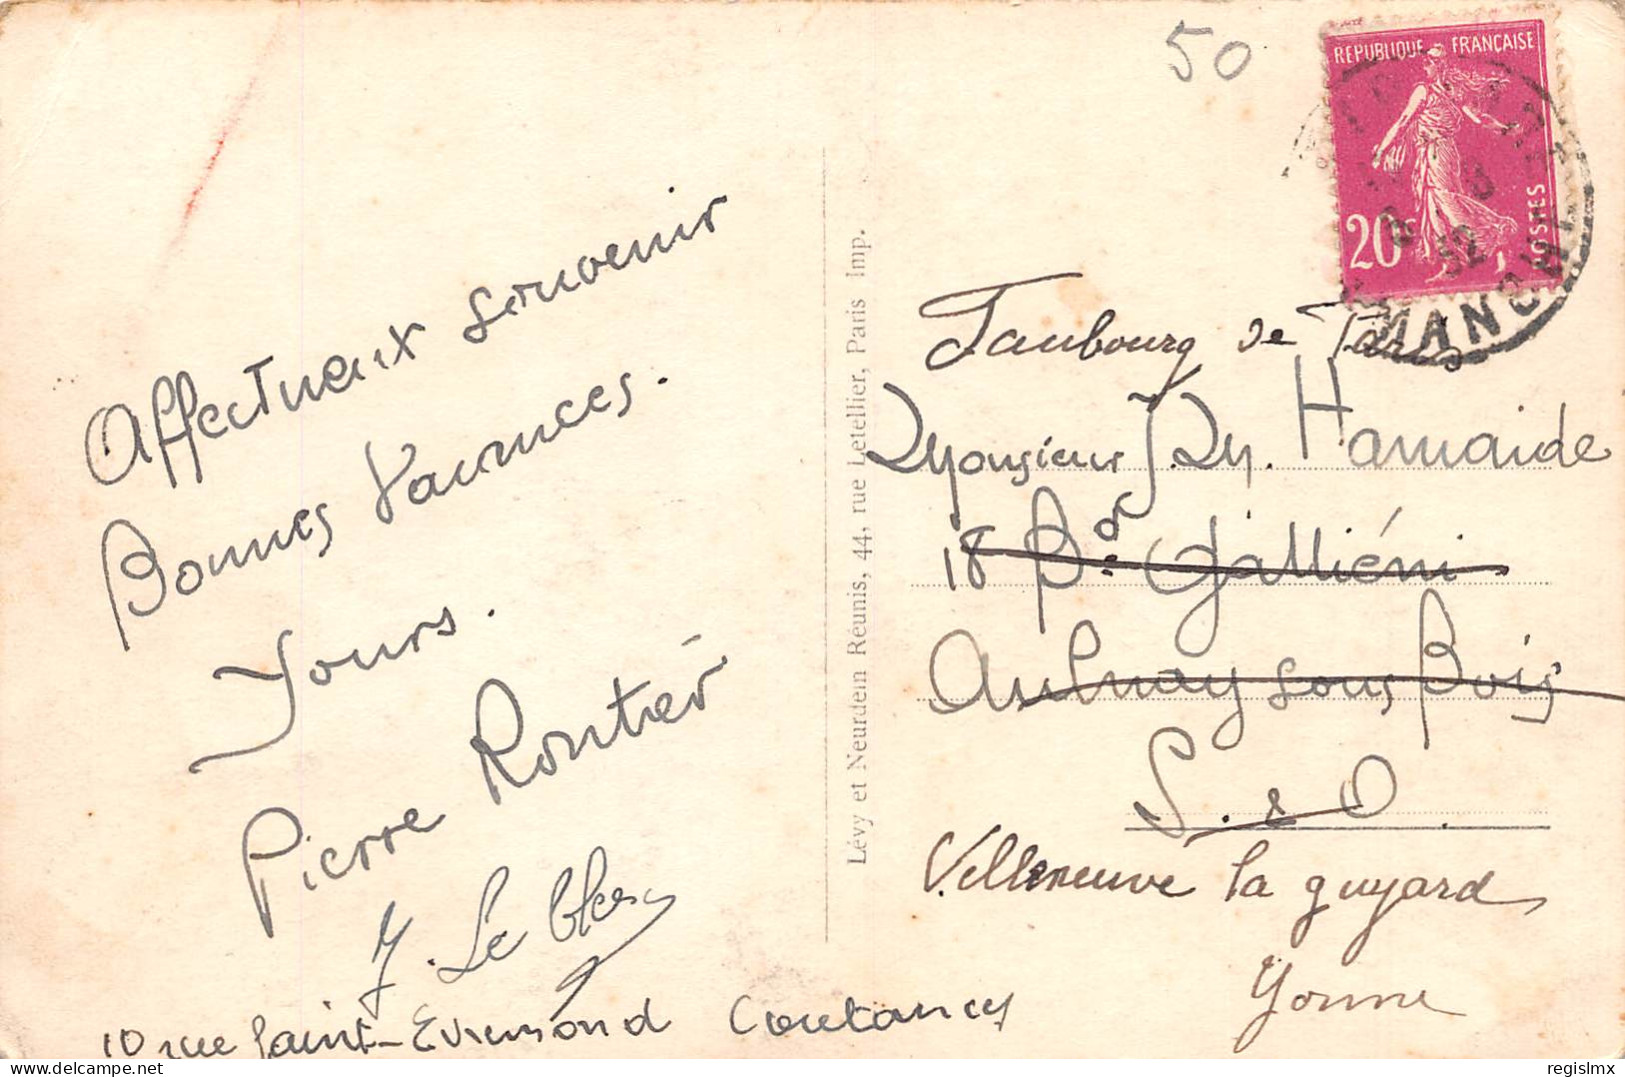 50
REPUBLIQUE FRANÇAISE
20c
POSTES
32
MANCHE
Affectueux souvenir
Bonnes Vacances.
Yours.
Pierre Rontier
J. Le
10 rue Saint-Evremond Coutances
Lévy et Neurdein Réunis, 44, rue Letellier, Paris Imp.
Faubourg de Paris
Monsieur J. M. Hamaide
18 Bd Galliéni
Aulnay sous Bois
S. & O.
Villeneuve la guyard
Yonne
regislmx